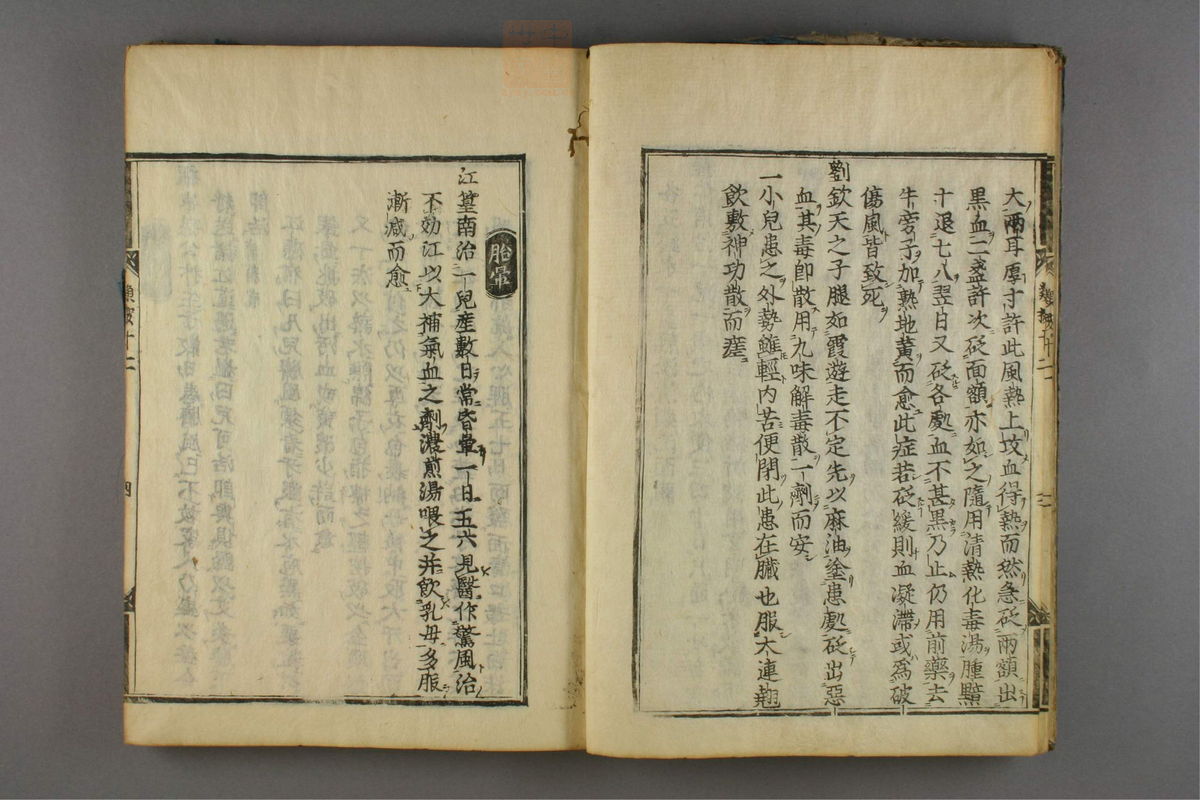 大兩耳厚寸許此風熱上攻血得熱而然急砭兩額出
黒血二盞許次砭面額亦如之隨用清熱化毒湯腫黯
十退七八翌日又砭各處血不甚黒乃止仍用前藥去
牛旁子加熟地黄而愈此症若砭緩則血凝滯或爲破
傷風皆致死
劉欽天之子腿如霞遊走不定先以麻油塗患處砭出惡
血其毒即散用九味解毒散一劑而安
一小兒患之外勢雖輕内苦便閉此患在臓也服大連翹
飲敷神功散而瘥
胎暈
江篁南治一兒産數日常昏暈一日五六見醫作驚風治
不効江以大補氣血之劑濃煎湯喂之并飲乳母多服
漸减而愈
類案十二
四